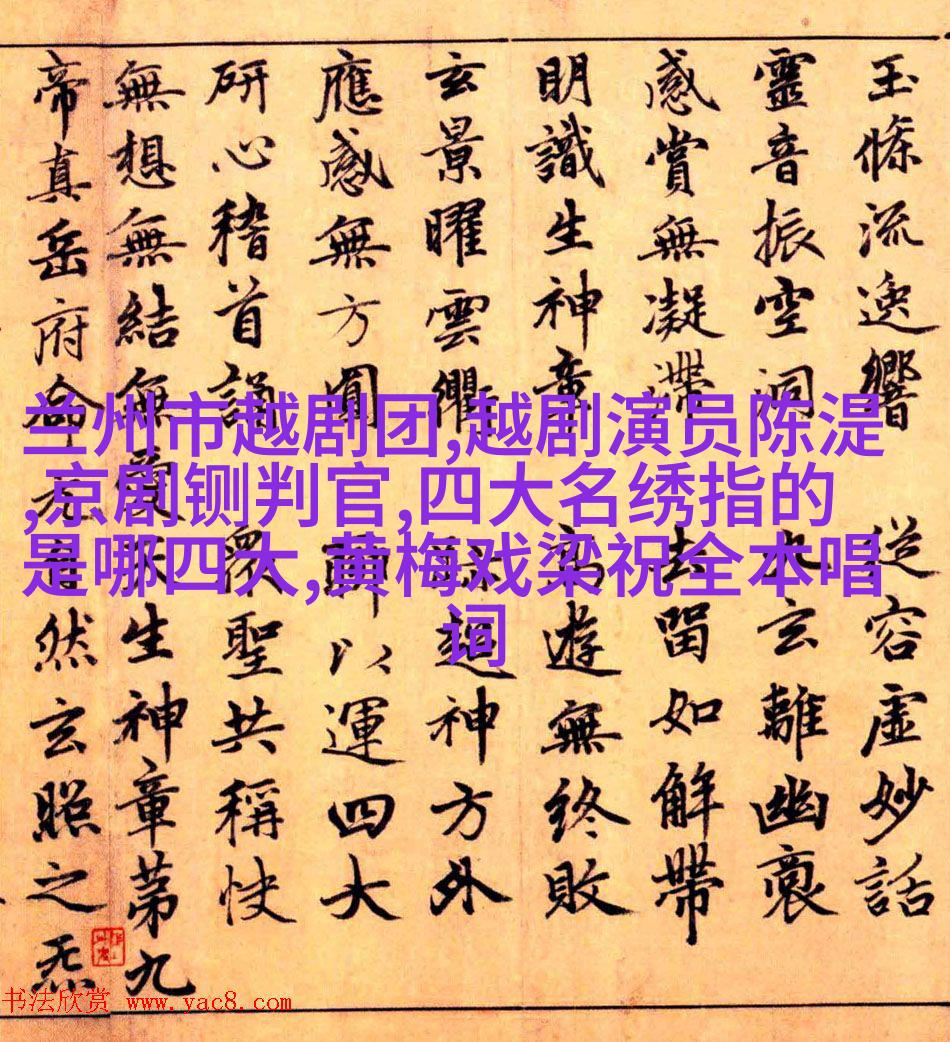 兰州市越剧团,越剧演员陈湜
,京剧铡判官,四大名绣指的
是哪四大,黄梅戏梁祝全本唱
词
玉條流逸響 從容虛妙話
靈音振空洞 玄離幽
感賞無凝滯 去留如解帶
明識生神章 高遊無終敗
玄景曜雲衢 超神方外
應感無方圓 以運四大
研心稽首誦 聖共稱快
無想無結無愛天生神章第九
帝真岳府命元自然玄照之炁
书法欣赏 www.yac8.com